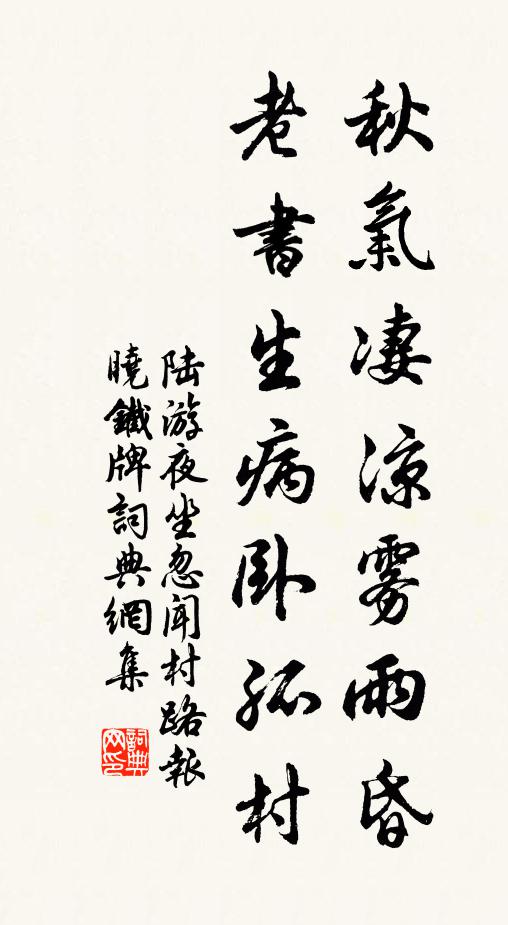 秋氣淒涼雾雨昏
老書生病卧孤村
陆游夜坐忽闻村路报
曉鐵牌詞典網集
詞典网印